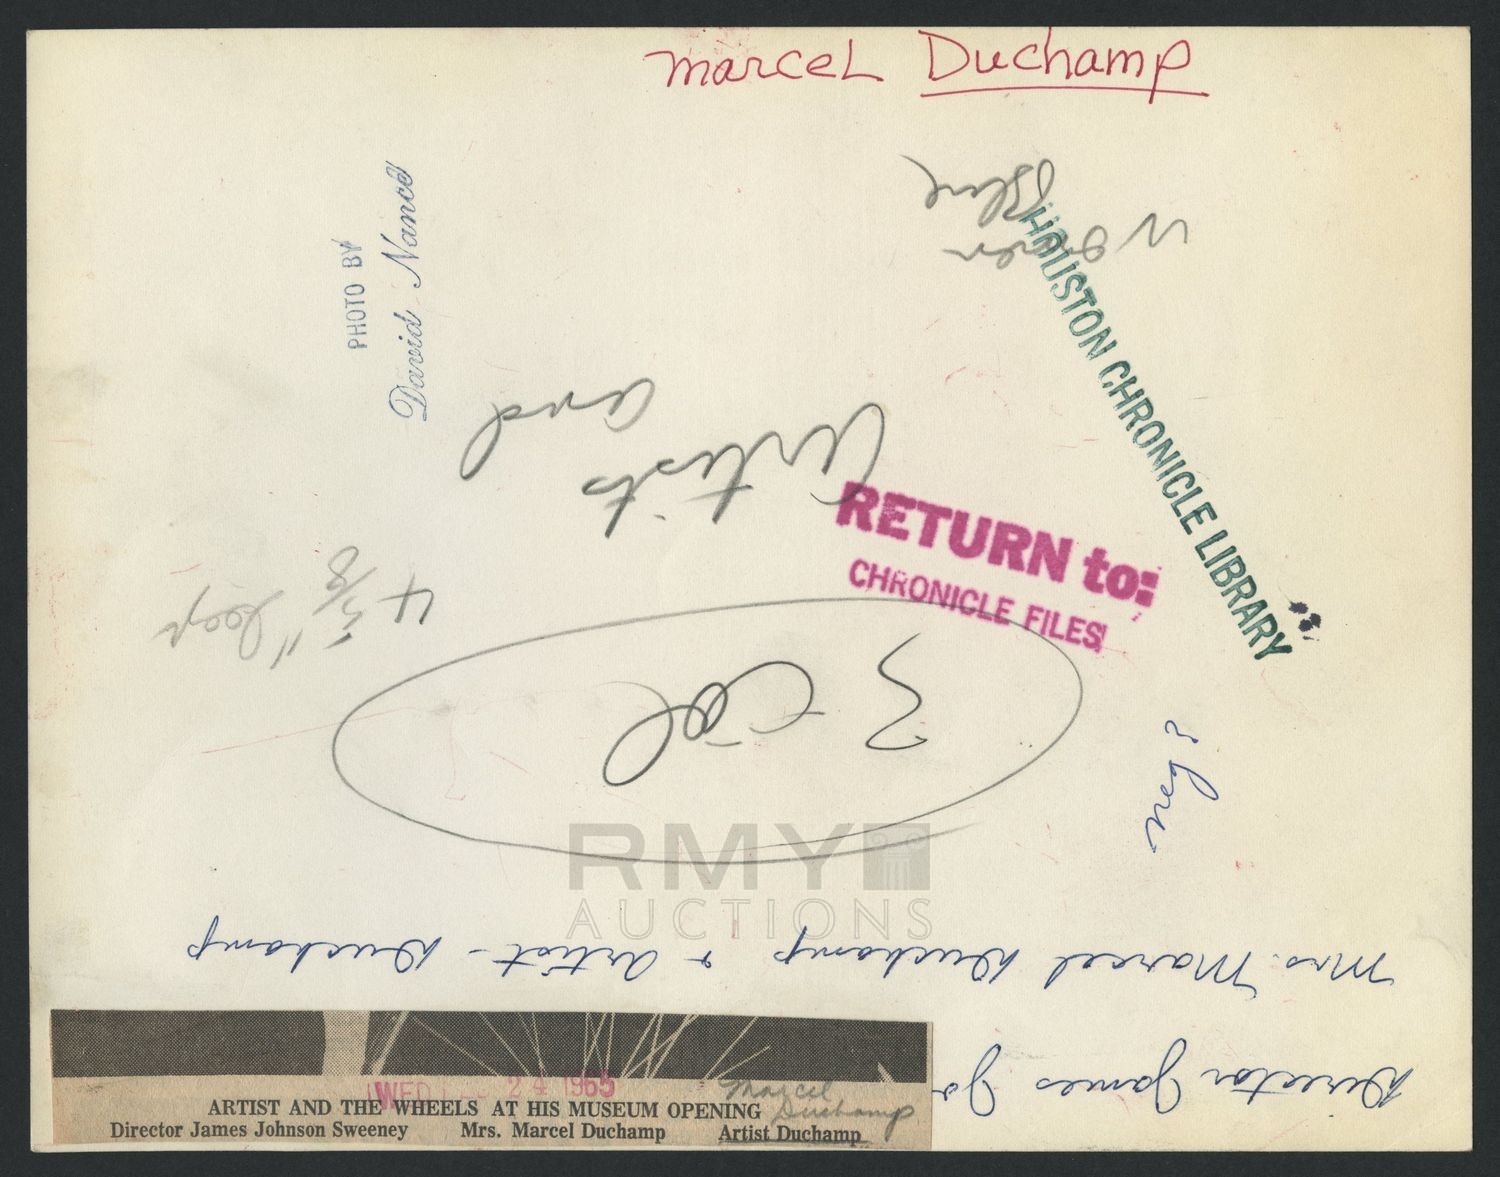 Marcel Duchamp
PHOTO BY
David Nance
HOUSTON CHRONICLE LIBRARY
RETURN to:
CHRONICLE FILES
Artists
and
4 5/8" deep
3 col
RMY
AUCTIONS
Director James Jo
Mrs. Marcel Duchamp & Artist - Duchamp
WED 24 1965
Marcel
Duchamp
ARTIST AND THE WHEELS AT HIS MUSEUM OPENING
Director James Johnson Sweeney Mrs. Marcel Duchamp Artist Duchamp